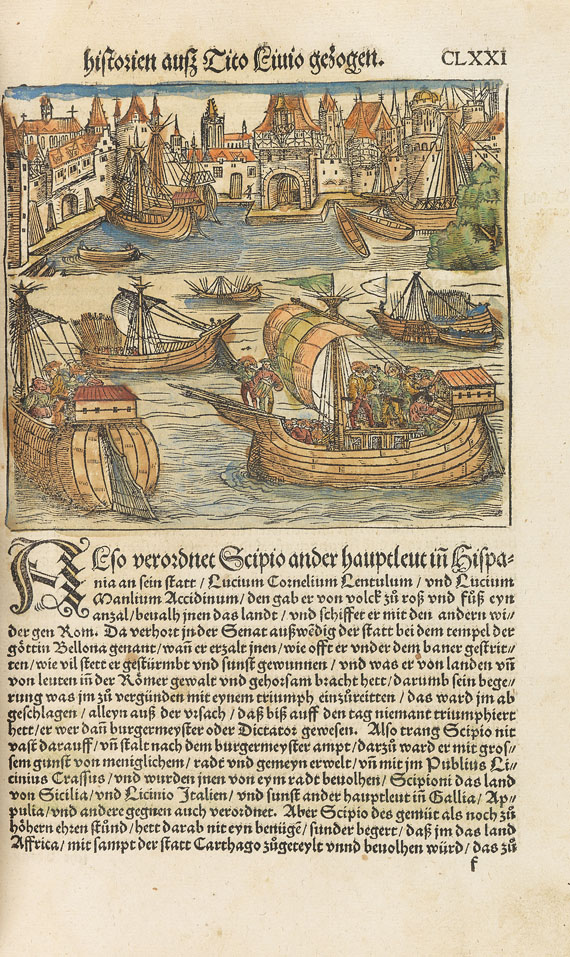 historien auß Tito Livio gezogen. CLXXI
ALso verordnet Scipio ander hauptleut in̄ Hispa-
nia an sein statt / Lucium Cornelium Lentulum / vnd Lucium
Manlium Accidinum / den gab er von volck zů roß vnd fůß eyn
anzal / beualh jnen das landt / vnd schiffet er mit den andern wi-
der gen Rom. Da verhort jn der Senat außwēdig der statt bei dem tempel der
göttin Bellona genant / wañ er erzalt jnen / wie offt er vnder dem baner gestrit-
ten / wie vil stett er gestürmbt vnd sunst gewunnen / vnd was er von landen vñ
von leuten in̄ der Römer gewalt vnd gehorsam bracht hett / darumb sein bege-
rung was jm zů vergünden mit eynem triumph einzůreitten / das ward jm ab
geschlagen / alleyn auß der vrsach / daß biß auff den tag niemant triumphiert
hett / er wer dañ burgermeyster oder Dictator gewesen. Also trang Scipio nit
vast darauff / vñ stalt nach dem burgermeyster ampt / darzů ward er mit gros-
sem gunst von meniglichem / radt vnd gemeyn erwelt / vñ mit jm Publius Li-
cinius Crassus / vnd wurden jnen von eym radt beuolhen / Scipioni das land
von Sicilia / vnd Licinio Italien / vnd sunst ander hauptleut in̄ Gallia / Ap-
pulia / vnd andere gegnen auch verordnet. Aber Scipio des gemüt als noch zů
höhern ehren stůnd / hett darab nit eyn benügē / sunder begert / daß jm das land
Affrica / mit sampt der statt Carthago zůgeteylt vnnd beuolhen würd / das zů
f